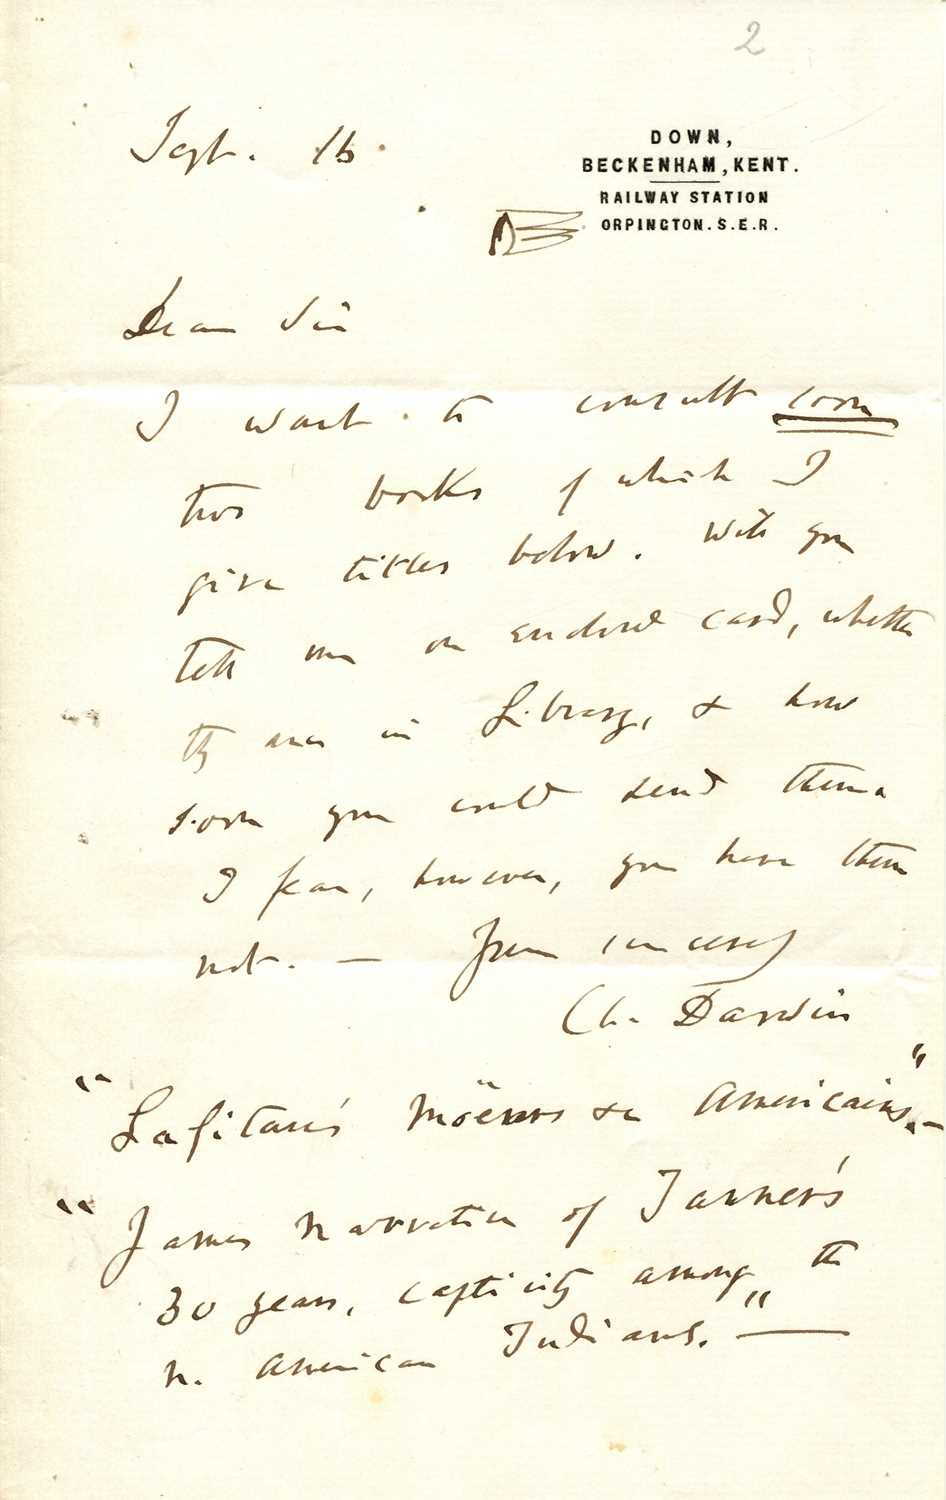 2
Sept. 16.
DOWN,
BECKENHAM, KENT.
RAILWAY STATION
ORPINGTON. S.E.R.
Dear Sir
I want to consult soon
two books of which I
give titles below. Will you
tell me on enclosed card, whether
they are in Library, & how
soon you could send them.
I fear, however, you have them
not. — Yours sincerely
Ch. Darwin
"Lafitau's Moëurs de Americains."—
"James Narrative of Tanner's
30 years, captivity among the
N. American Indians." —